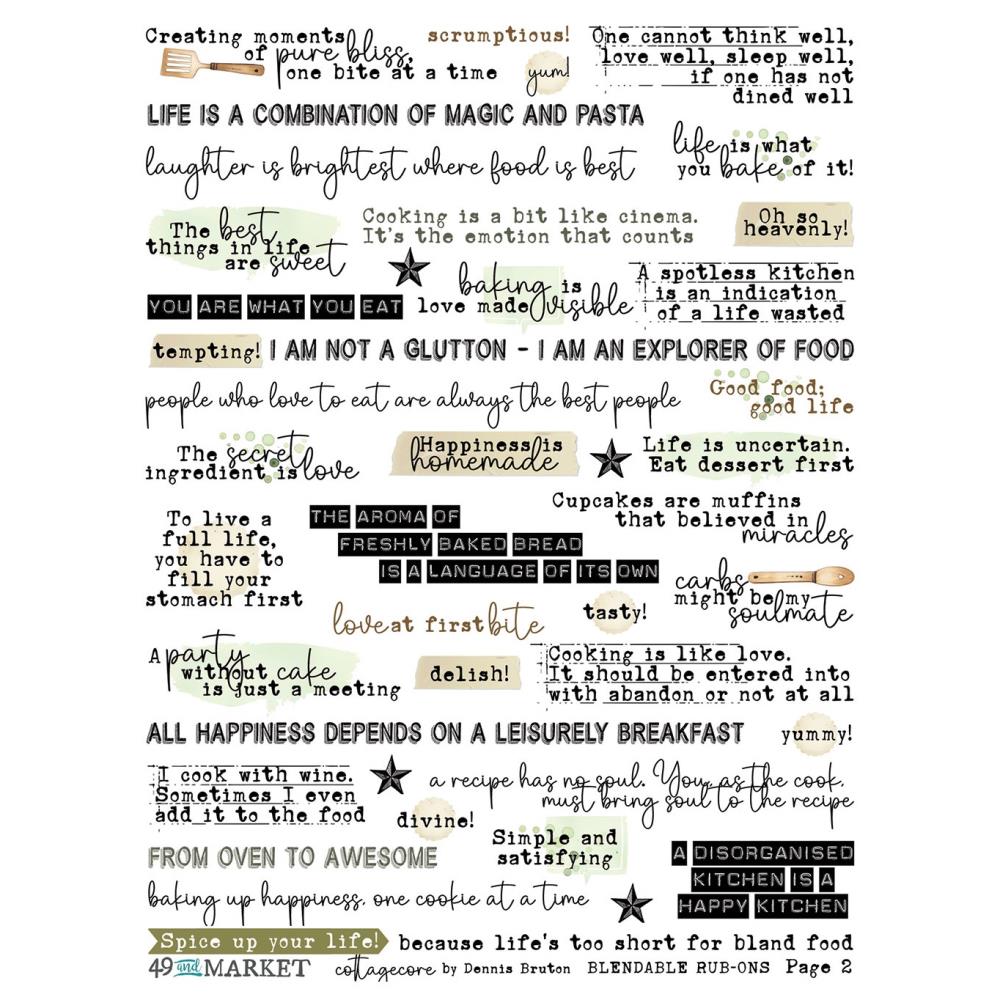 Creating moments
of pure bliss,
one bite at a time
scrumptious!
yum!
One cannot think well,
love well, sleep well,
if one has not
dined well
LIFE IS A COMBINATION OF MAGIC AND PASTA
laughter is brightest where food is best
life is what
you bake of it!
The best
things in life
are sweet
Cooking is a bit like cinema.
It's the emotion that counts
Oh so
heavenly!
YOU ARE WHAT YOU EAT
baking is
love made visible
A spotless kitchen
is an indication
of a life wasted
tempting!
I AM NOT A GLUTTON - I AM AN EXPLORER OF FOOD
people who love to eat are always the best people
Good food;
good life
The secret
ingredient is love
Happiness is
homemade
Life is uncertain.
Eat dessert first
To live a
full life,
you have to
fill your
stomach first
THE AROMA OF
FRESHLY BAKED BREAD
IS A LANGUAGE OF ITS OWN
Cupcakes are muffins
that believed in
miracles
carbs
might be my
soulmate
love at first bite
tasty!
A party
without cake
is just a meeting
delish!
Cooking is like love.
It should be entered into
with abandon or not at all
ALL HAPPINESS DEPENDS ON A LEISURELY BREAKFAST
yummy!
I cook with wine.
Sometimes I even
add it to the food
a recipe has no soul. You, as the cook,
must bring soul to the recipe
divine!
Simple and
satisfying
FROM OVEN TO AWESOME
A DISORGANISED
KITCHEN IS A
HAPPY KITCHEN
baking up happiness, one cookie at a time
Spice up your life!
because life's too short for bland food
49 and MARKET
cottagecore by Dennis Bruton BLENDABLE RUB-ONS Page 2